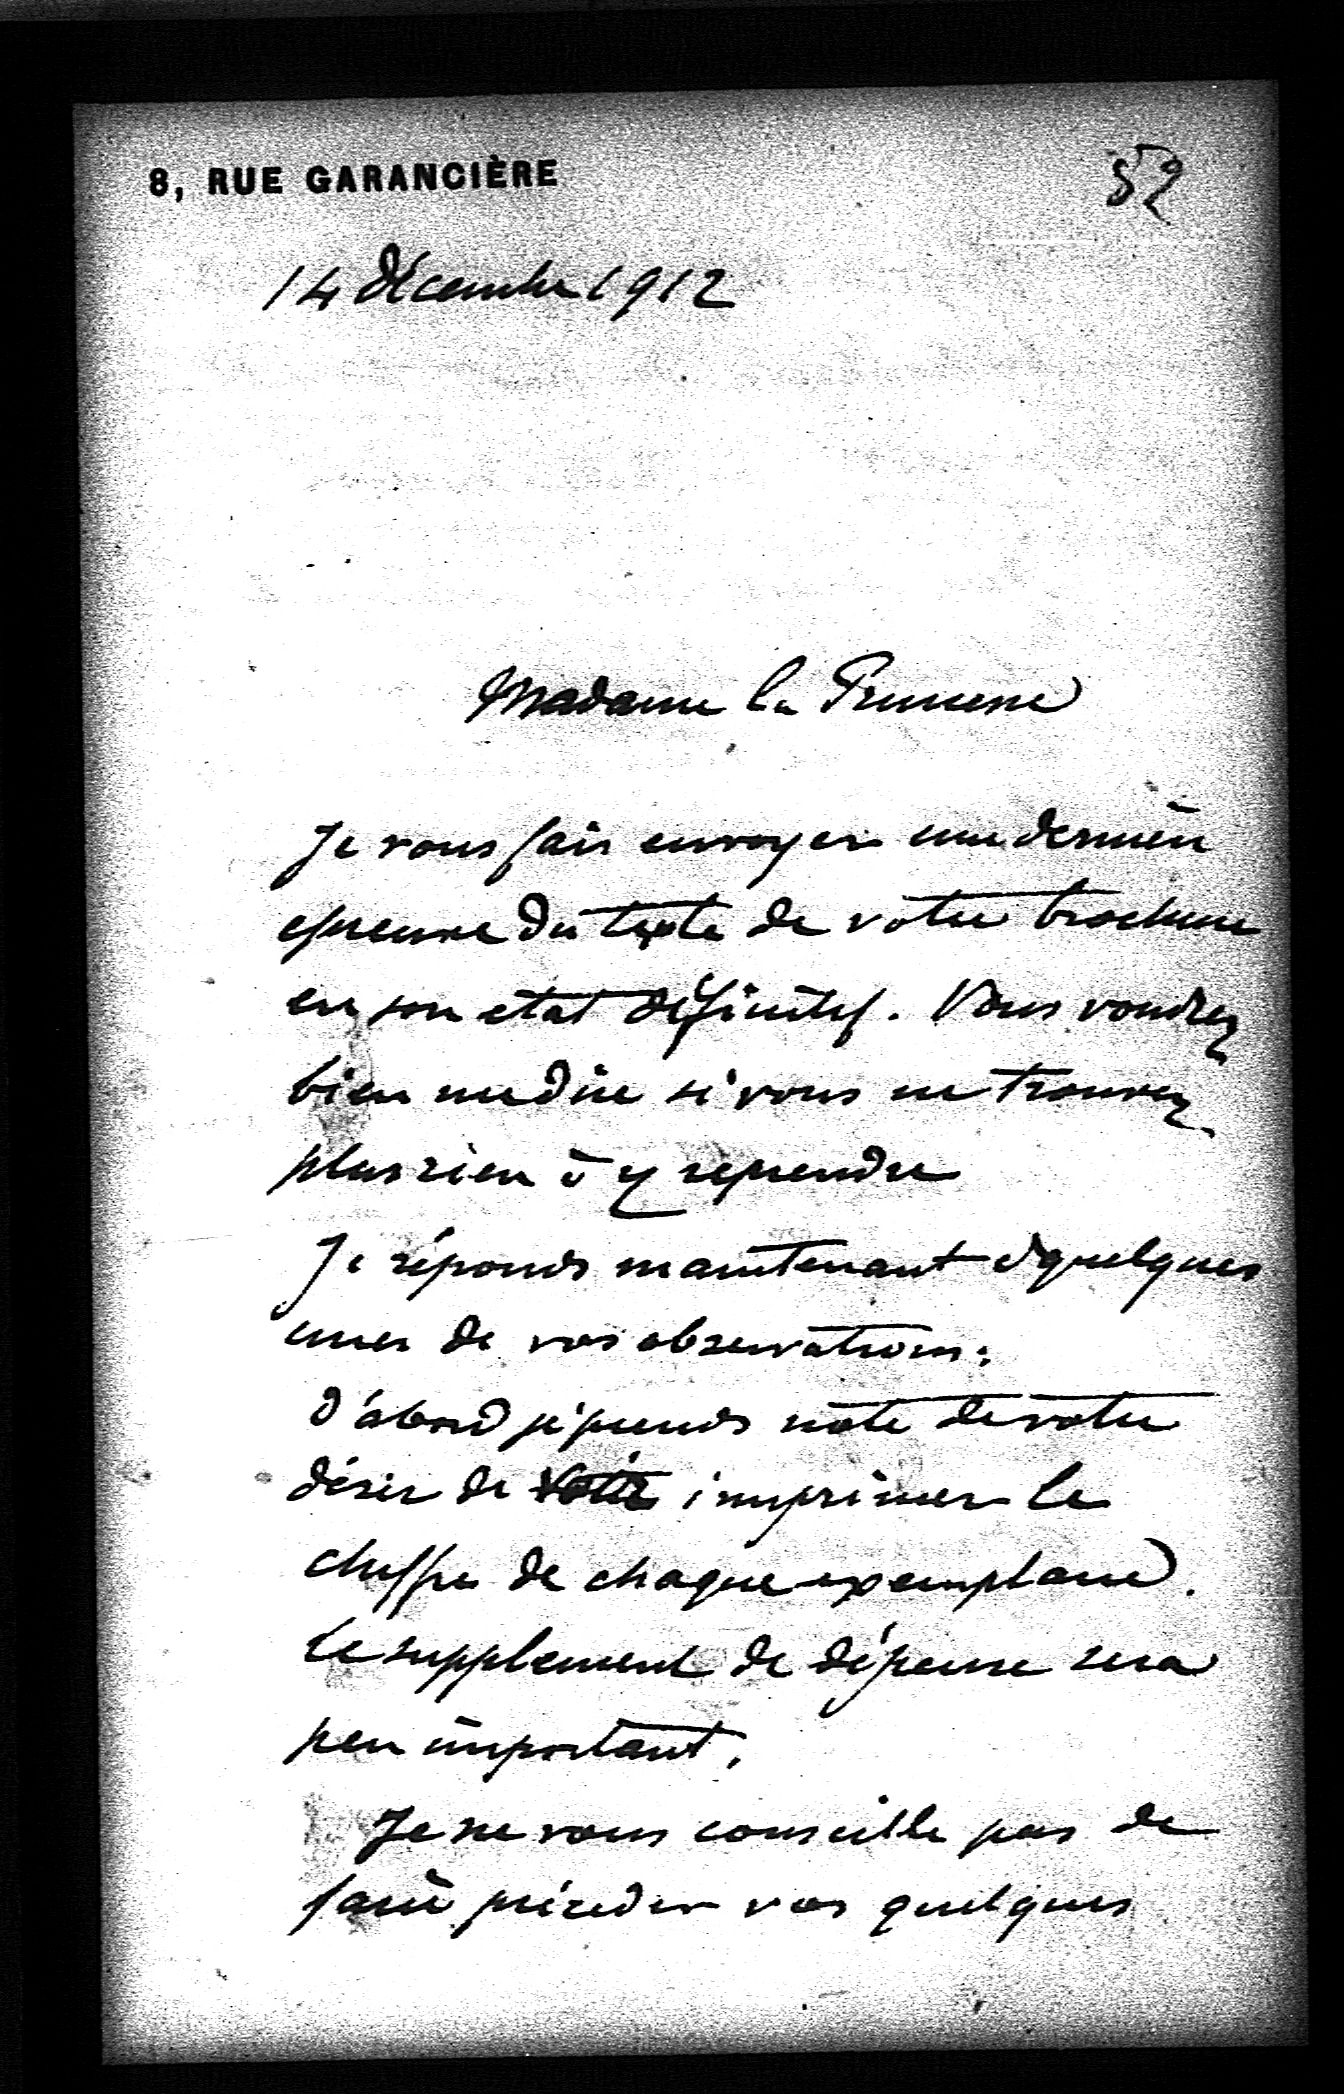 8, RUE GARANCIÈRE
52
14 décembre 1912
Madame la Princesse
Je vous fais envoyer une dernière
epreuve du texte de votre brochure
en son etat définitif. Vous voudrez
bien me dire si vous ne trouvez
plus rien à y reprendre
Je réponds maintenant à quelques
unes de vos observations :
D'abord je prends note de votre
désir de voir imprimer le
chiffre de chaque exemplaire.
Le supplement de dépense sera
peu important.
Je ne vous conseille pas de
faire précéder vos quelques